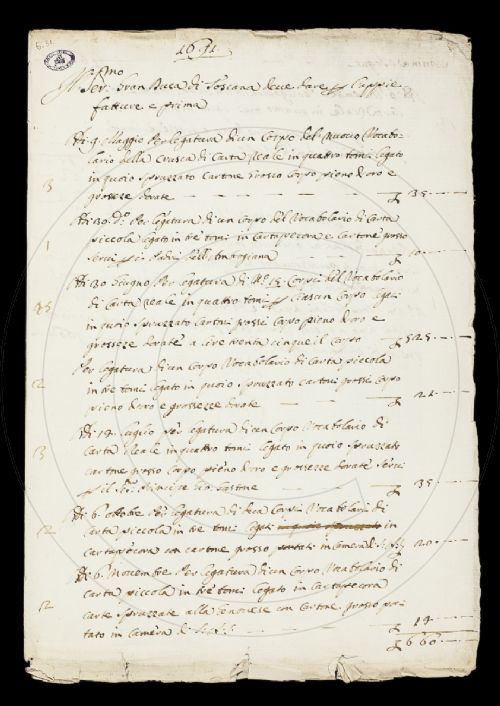 1691
Ser: Gran Duca di Toscana deve dare p l'appie
fatture e prima
Adi 9. Maggio Per legatura di un Corpo del Nuovo Vocabo-
lario della Crusca di Carta Reale in quattro tomi legato
in quoio spruzzato cartone grosso corpo pieno d'oro e
grosseze dorate — — — — £ 35
Adi 30. do. Per legatura di un corpo del Vocabolario di Carta
piccola legato in tre tomi in cartapecora e cartone grosso
£ 10
Adi 30 Giugno Per legatura di No. 15. Corpi del Vocabolario
di Carta reale in quattro tomi p ciascun corpo legati
in quoio spruzzato cartoni grossi corpo pieno d'oro e
grosseze dorate a lire trenta cinque il corpo £ 525
Per legatura di un corpo Vocabolario di carta piccola
in tre tomi legato in quoio spruzzato cartoni grossi corpo
pieno d'oro e grossezze dorate — — £ 21
Adi 19. Luglio Per legatura di un Corpo Vocabolario di
Carta Reale in quattro tomi legato in quoio spruzzato
cartone grosso corpo pieno d'oro e grossezze dorate servi
p il Sr. Principe Gio: Gastone — — £ 35
Adi 6. ottobre Per legatura di due Corpi Vocabolari di
carta piccola in tre tomi legati in quoio spruzzato in
cartapecora con cartone grosso portati in camera di S. A. £ 20
Adi 6. Novembre Per legatura di un Corpo Vocabolario di
carta piccola in tre tomi legato in cartapecora
carte spruzzate alla Genovese con Cartone grosso por-
tato in camera di S. A. S. — — £ 14
£ 660